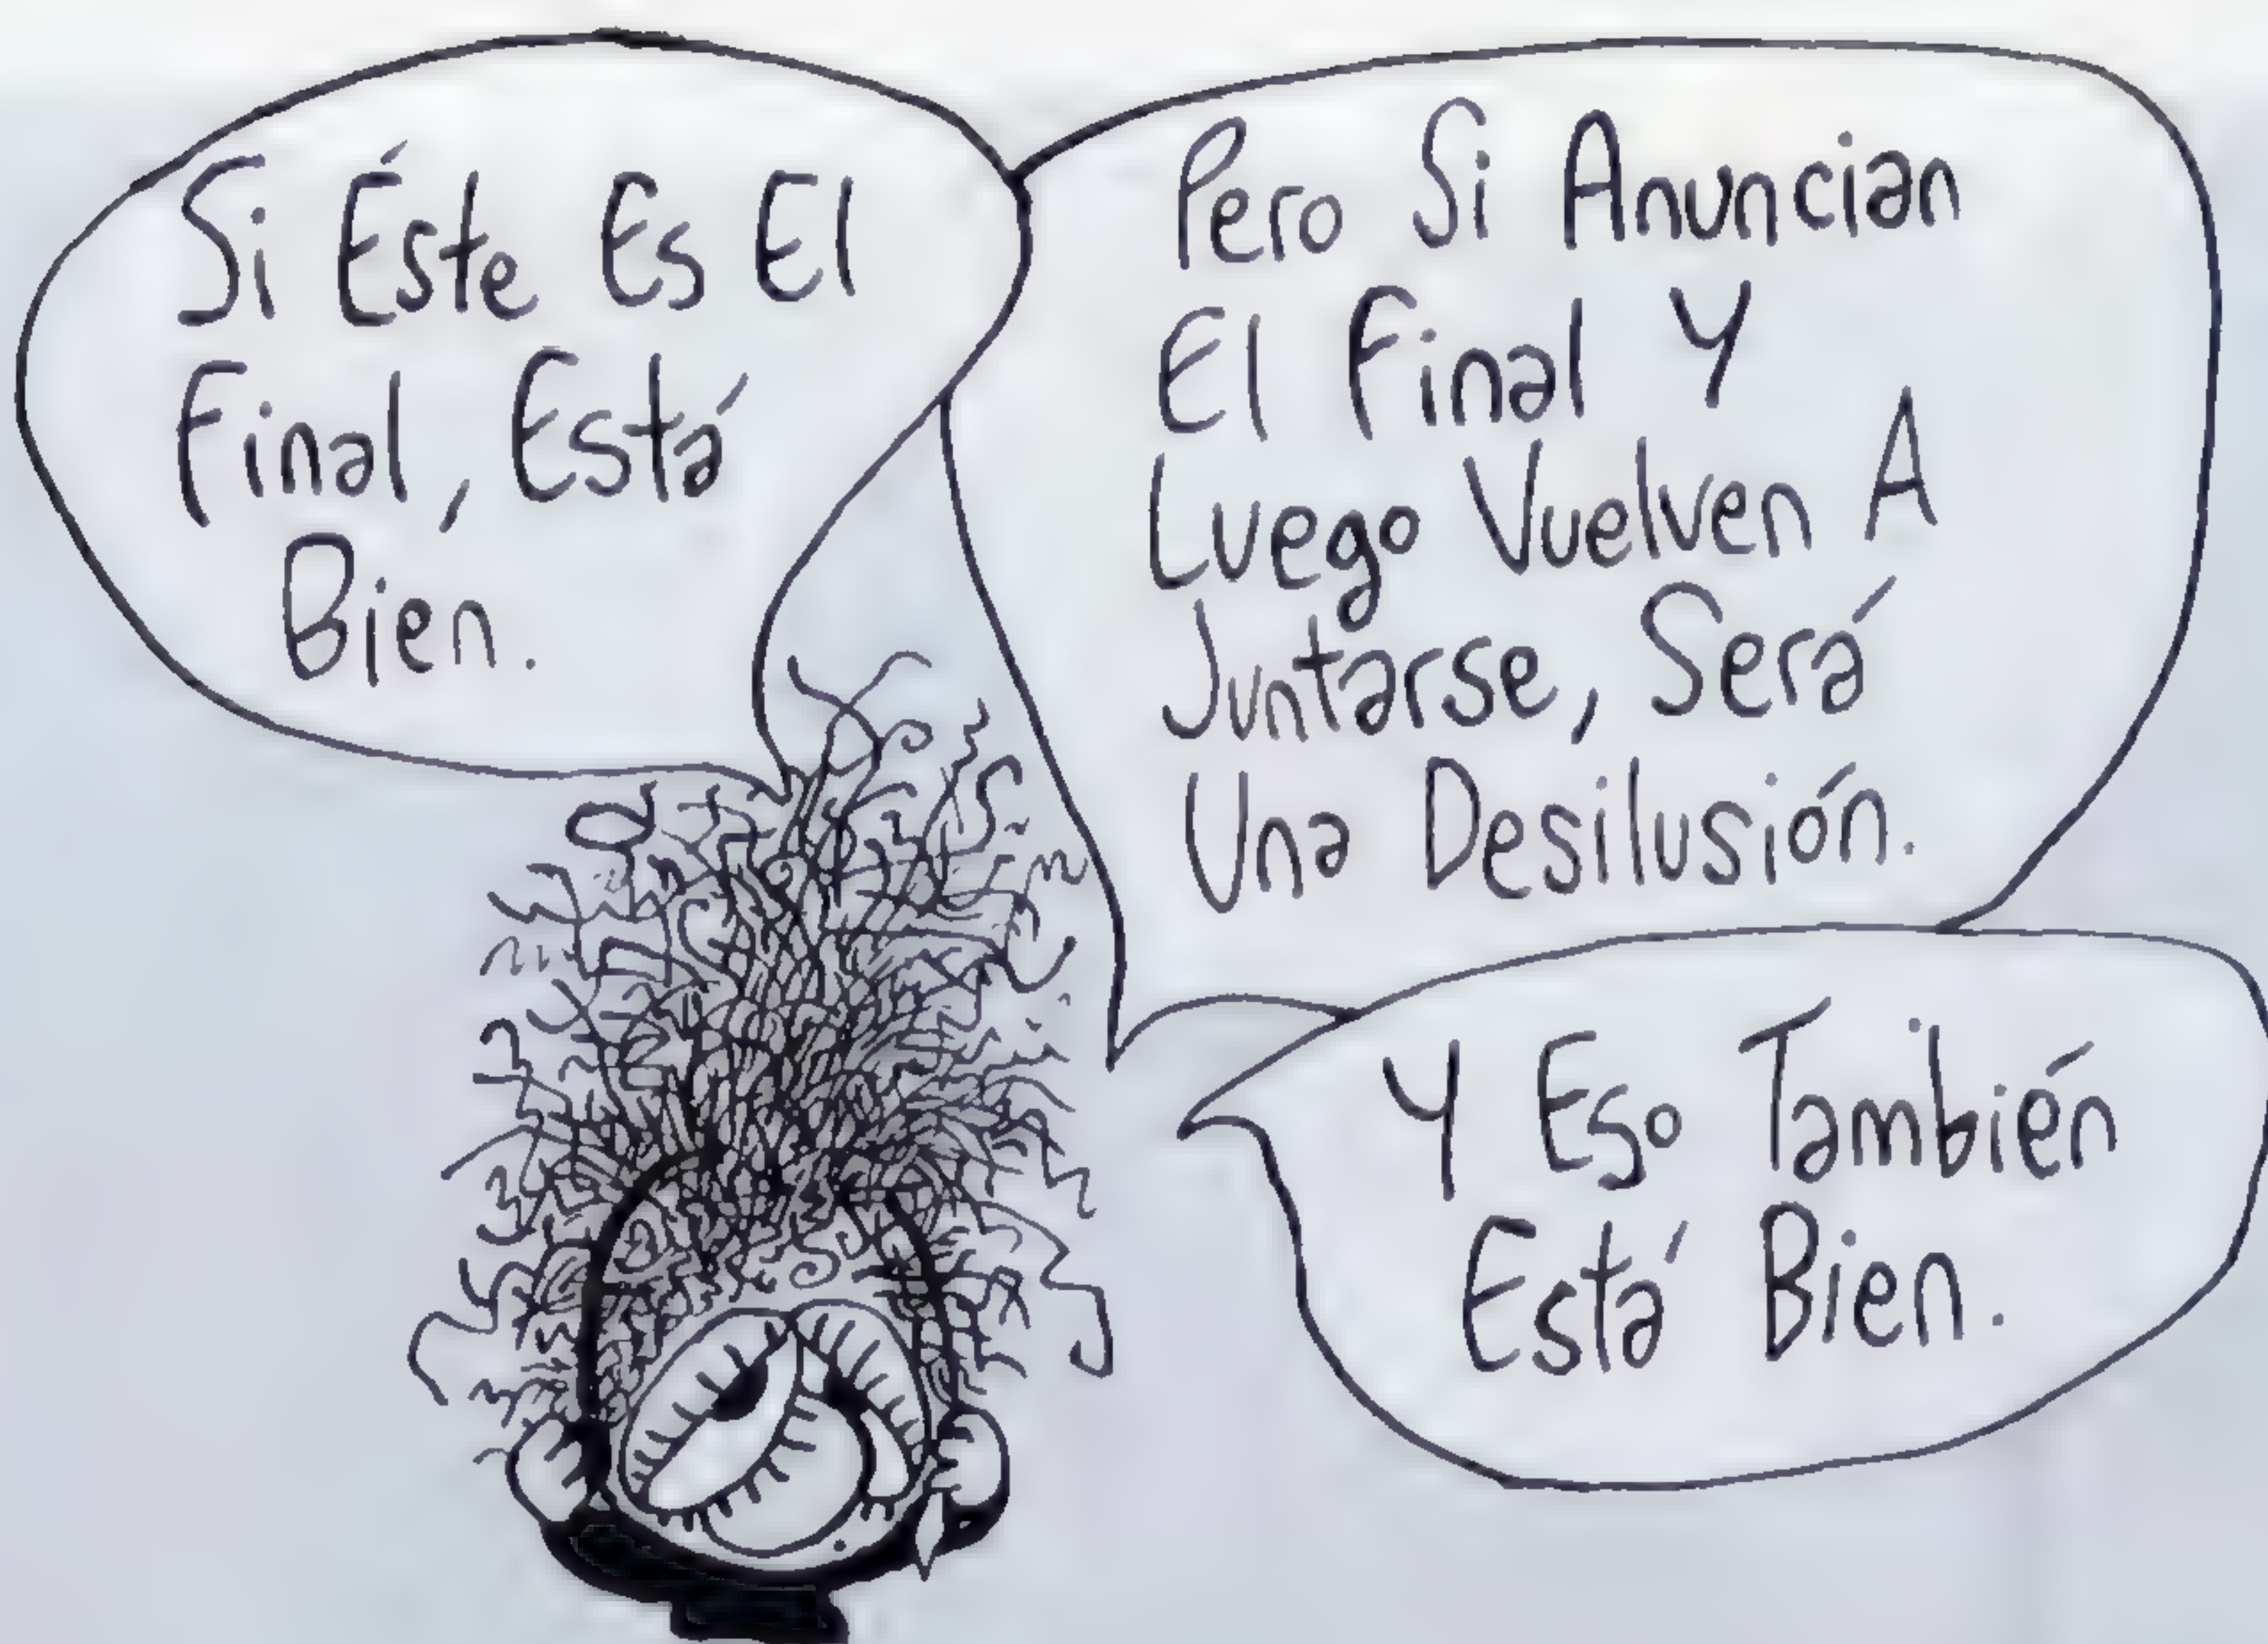 Si Éste Es El
Final, Está
Bien.
Pero Si Anuncian
El Final Y
Luego Vuelven A
Juntarse, Será
Una Desilusión.
Y Eso También
Está Bien.